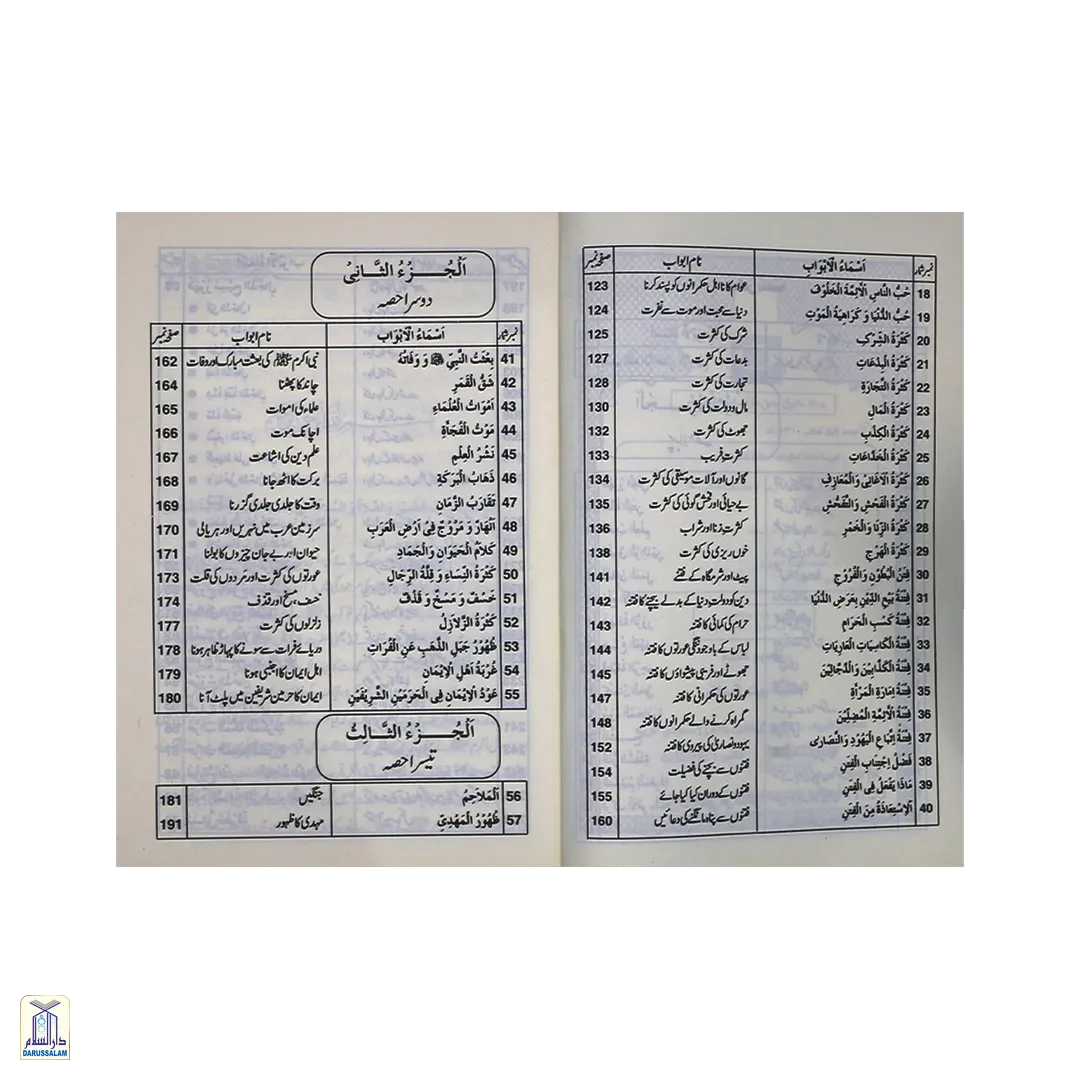 نمبر شمار اَسْمَاءُ الْاَبْوَابِ نام ابواب صفحہ نمبر
18 حُبُّ النَّاسِ الْاَئِمَّةَ الْخَلُوْفَ عوام کا نا اہل حکمرانوں کو پسند کرنا 123
19 حُبُّ الدُّنْيَا وَ كَرَاهِيَةُ الْمَوْتِ دنیا سے محبت اور موت سے نفرت 124
20 كَثْرَةُ الشِّرْكِ شرک کی کثرت 125
21 كَثْرَةُ الْبِدْعَاتِ بدعات کی کثرت 127
22 كَثْرَةُ التِّجَارَةِ تجارت کی کثرت 128
23 كَثْرَةُ الْمَالِ مال و دولت کی کثرت 130
24 كَثْرَةُ الْكِذْبِ جھوٹ کی کثرت 132
25 كَثْرَةُ الْخَدَّاعَاتِ کثرتِ فریب 133
26 كَثْرَةُ الْاَغَانِيْ وَالْمَعَازِفِ گانوں اور آلات موسیقی کی کثرت 134
27 كَثْرَةُ الْفَحْشِ وَالتَّفَحُّشِ بے حیائی اور فحش گوئی کی کثرت 135
28 كَثْرَةُ الزِّنَا وَالْخَمْرِ کثرتِ زنا اور شراب 136
29 كَثْرَةُ الْهَرْجِ خوں ریزی کی کثرت 138
30 فِتَنُ الْبُطُوْنِ وَ الْفُرُوْجِ پیٹ اور شرمگاہ کے فتنے 141
31 فِتْنَةُ بَيْعِ الدِّيْنِ بِعَرَضِ الدُّنْيَا دین کو دولت دنیا کے بدلے بیچنے کا فتنہ 142
32 فِتْنَةُ كَسْبِ الْحَرَامِ حرام کی کمائی کا فتنہ 143
33 فِتْنَةُ الْكَاسِيَاتِ الْعَارِيَاتِ لباس کے باوجود ننگی عورتوں کا فتنہ 144
34 فِتْنَةُ الْكَذَّابِيْنَ وَ الدَّجَّالِيْنَ جھوٹے اور فریبی پیشواؤں کا فتنہ 145
35 فِتْنَةُ اِمَارَةِ الْمَرْأَةِ عورتوں کی حکمرانی کا فتنہ 147
36 فِتْنَةُ الْاَئِمَّةِ الْمُضِلِّيْنَ گمراہ کرنے والے حکمرانوں کا فتنہ 148
37 فِتْنَةُ اِتِّبَاعِ الْيَهُوْدِ وَ النَّصَارٰى یہود و نصاریٰ کی پیروی کا فتنہ 152
38 فَضْلُ اِجْتِنَابِ الْفِتَنِ فتنوں سے بچنے کی فضیلت 154
39 مَاذَا يَفْعَلُ فِي الْفِتَنِ فتنوں کے دوران کیا کیا جائے 155
40 اَلْاِسْتِعَاذَةُ مِنَ الْفِتَنِ فتنوں سے پناہ مانگنے کی دعائیں 160
اَلْجُزْءُ الثَّانِيْ
دوسرا حصہ
نمبر شمار اَسْمَاءُ الْاَبْوَابِ نام ابواب صفحہ نمبر
41 بِعْثَتُ النَّبِيِّ ﷺ وَ وَفَاتُهُ نبی اکرم ﷺ کی بعثت مبارک اور وفات 162
42 شَقُّ الْقَمَرِ چاند کا پھٹنا 164
43 اَمْوَاتُ الْعُلَمَاءِ علماء کی اموات 165
44 مَوْتُ الْفُجَأَةِ اچانک موت 166
45 نَشْرُ الْعِلْمِ علم دین کی اشاعت 167
46 ذَهَابُ الْبَرَكَةِ برکت کا اٹھ جانا 168
47 تَقَارُبُ الزَّمَانِ وقت کا جلدی جلدی گزرنا 169
48 اَنْهَارٌ وَ مُرُوْجٌ فِيْ اَرْضِ الْعَرَبِ سرزمین عرب میں نہریں اور ہریالی 170
49 كَلَامُ الْحَيَوَانِ وَالْجَمَادِ حیوان اور بے جان چیزوں کا بولنا 171
50 كَثْرَةُ النِّسَاءِ وَ قِلَّةُ الرِّجَالِ عورتوں کی کثرت اور مردوں کی قلت 173
51 خَسْفٌ وَ مَسْخٌ وَ قَذْفٌ خسف، مسخ اور قذف 174
52 كَثْرَةُ الزَّلَازِلِ زلزلوں کی کثرت 177
53 ظُهُوْرُ جَبَلِ الذَّهَبِ عَنِ الْفُرَاتِ دریائے فرات سے سونے کا پہاڑ ظاہر ہونا 178
54 غُرْبَةُ اَهْلِ الْاِيْمَانِ اہل ایمان کا اجنبی ہونا 179
55 عَوْدُ الْاِيْمَانِ فِي الْحَرَمَيْنِ الشَّرِيْفَيْنِ ایمان کا حرمین شریفین میں پلٹ آنا 180
اَلْجُزْءُ الثَّالِثُ
تیسرا حصہ
56 اَلْمَلَاحِمُ جنگیں 181
57 ظُهُوْرُ الْمَهْدِيِّ مہدی کا ظہور 191
دارالسلام
DARUSSALAM